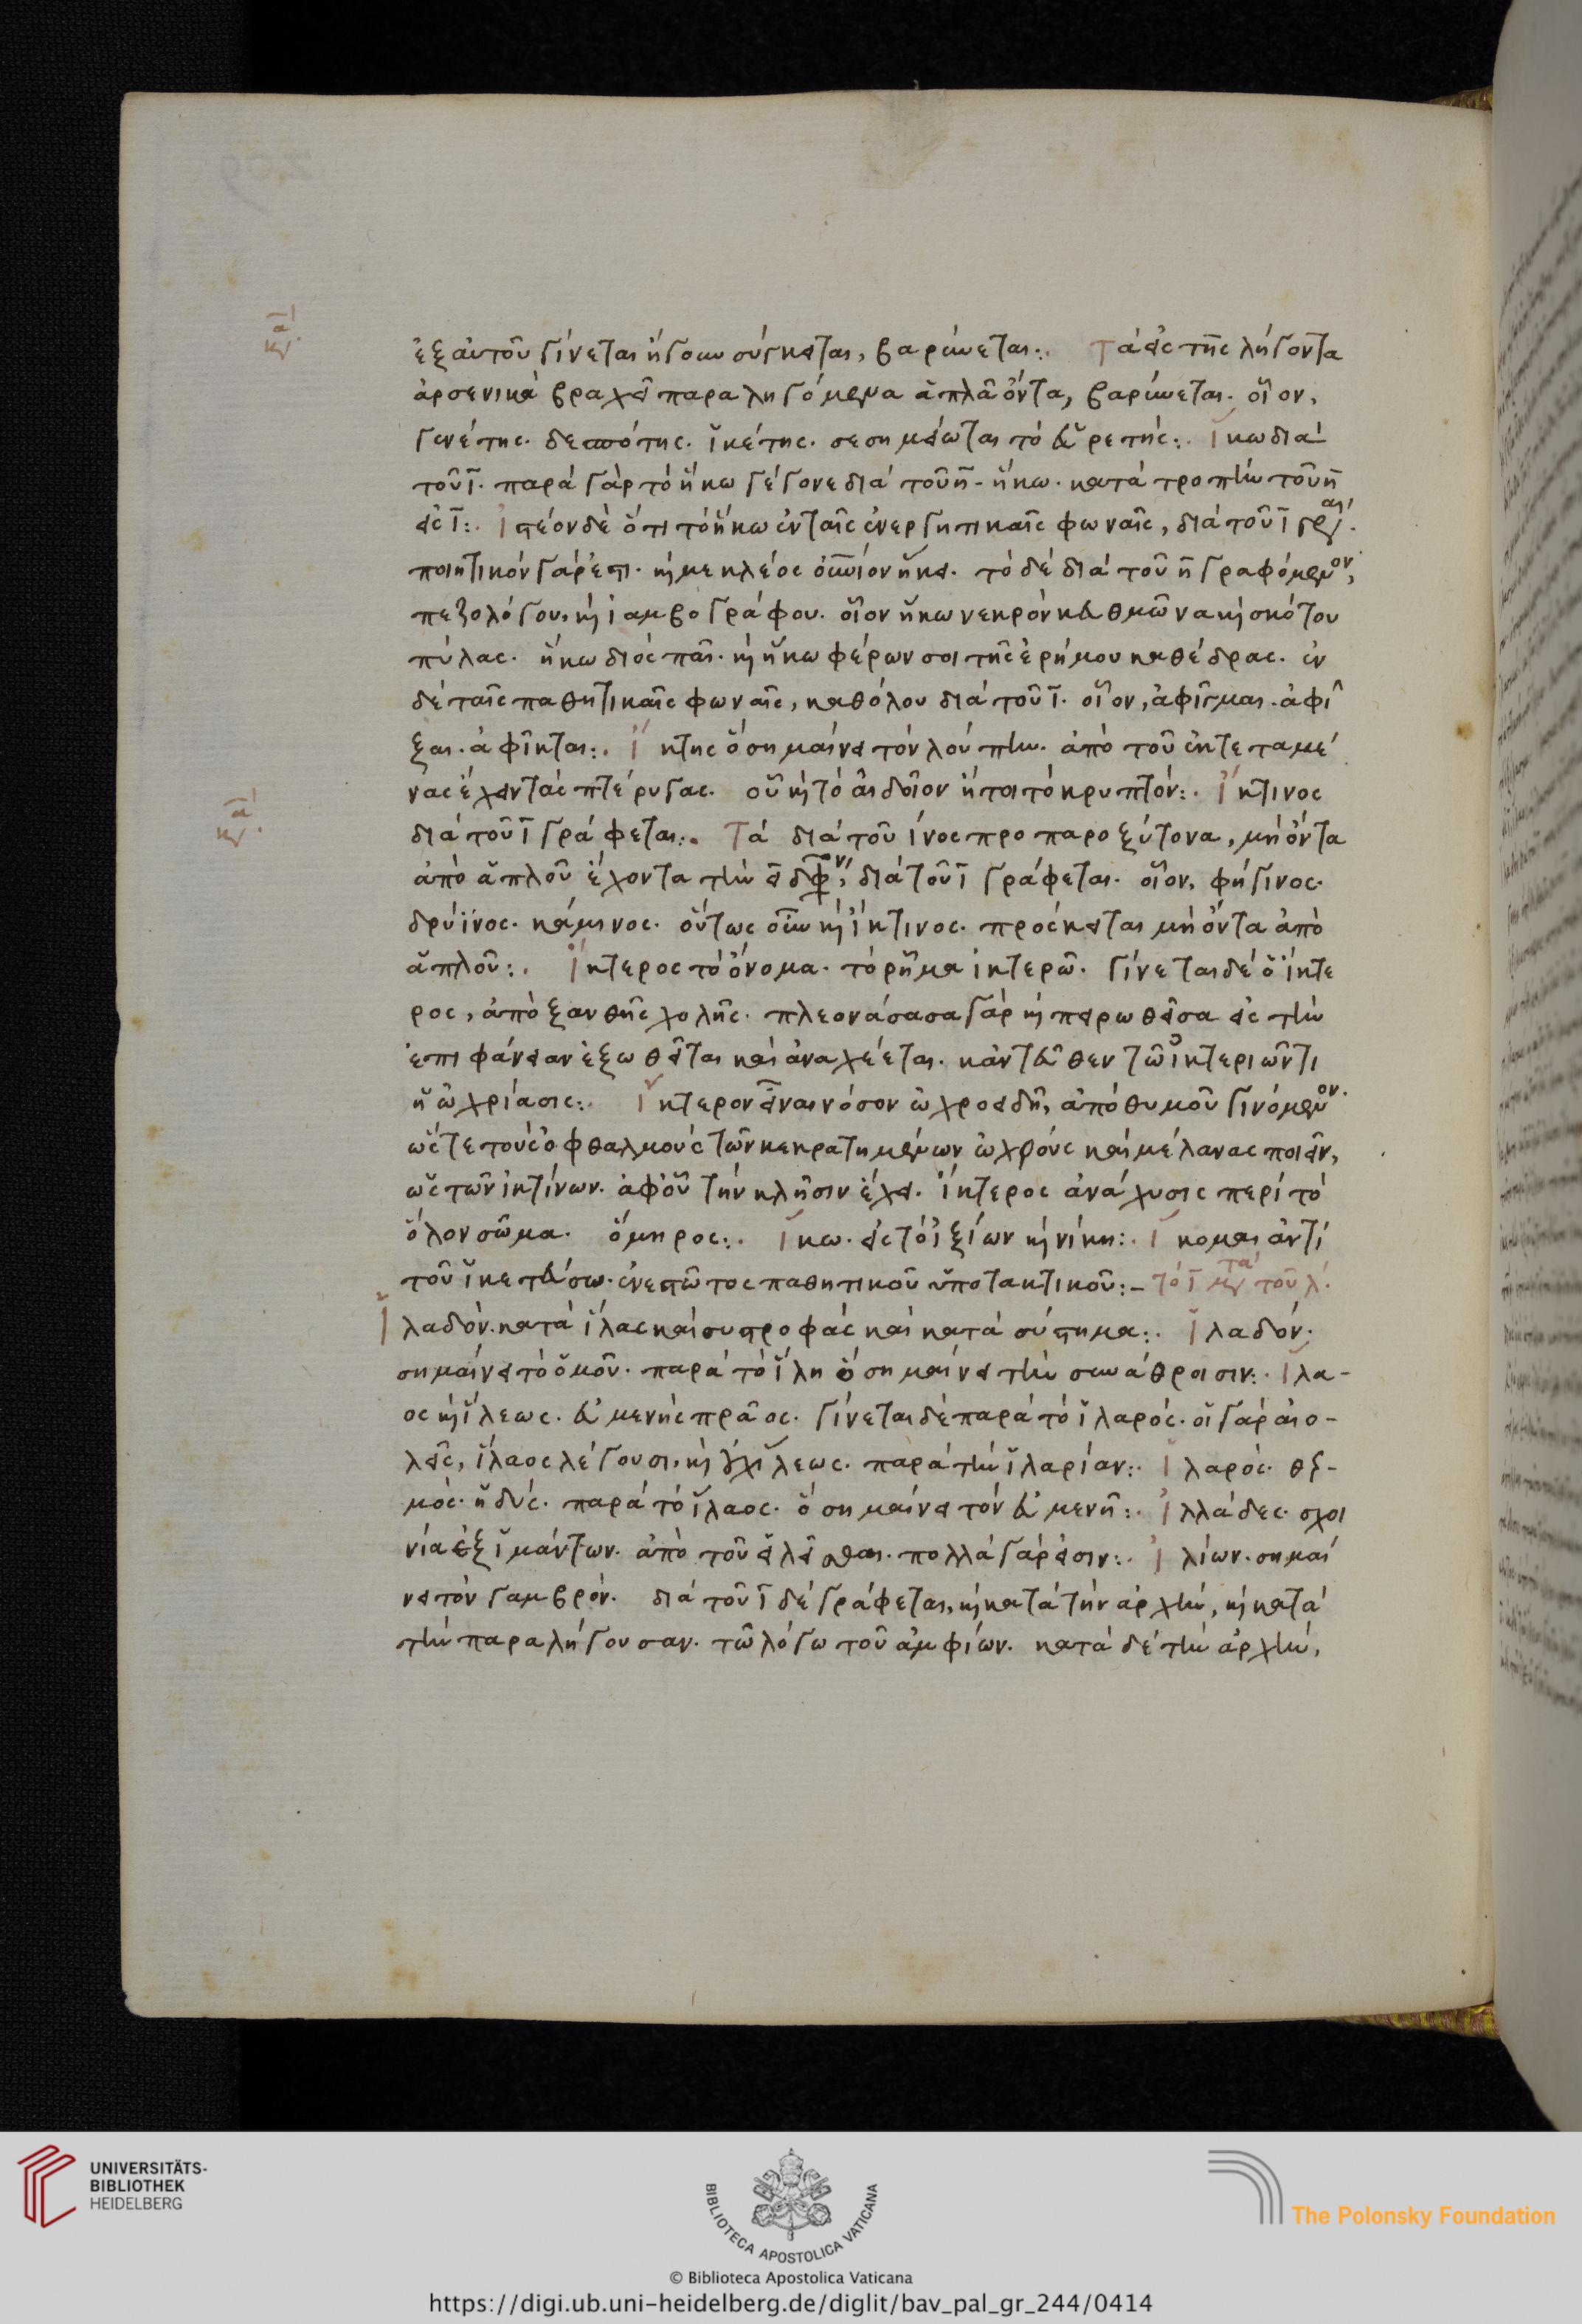 κα
ἐξ αὐτοῦ γίνεται ἤγουν σύγκειται, βαρύνεται:. Τὰ εἰς της λήγοντα
ἀρσενικὰ βραχεῖ παραληγόμενα ἁπλᾶ ὄντα, βαρύνεται. οἷον,
γενέτης. δεσπότης. ἱκέτης. σεσημείωται τὸ εὑρετής:. ἵκω διὰ
τοῦ ῑ. παρὰ γὰρ τὸ ἥκω γέγονε διὰ τοῦ η̄ - ἥκω. κατὰ τροπὴν τοῦ η̄
εἰς ῑ:. Ἰστέον δὲ ὅτι τὸ ἥκω ἐν ταῖς ἐνεργητικαῖς φωναῖς, διὰ τοῦ ῑ γράφεται.
ποιητικὸν γάρ ἐστι. καί με κλέος οἷον ἵκει. τὸ δὲ διὰ τοῦ η̄ γραφόμενον,
πεζολόγου, καὶ ἰαμβογράφου. οἷον ἥκω νεκρὸν κευθμῶνα καὶ σκότου
πύλας. ἥκω διὸς παῖς. καὶ ἥκω φέρων σοι τῆς ἐρήμου καθέδρας. ἐν
δὲ ταῖς παθητικαῖς φωναῖς, καθόλου διὰ τοῦ ῑ. οἷον, ἀφῖγμαι. ἀφῖ
ξαι. ἀφῖκται:. ἵκτης ὃ σημαίνει τὸν λούπην. ἀπὸ τοῦ ἐκτεταμέ
νας ἔχειν τὰς πτέρυγας. οὗ καὶ τὸ αἰδοῖον ἤτοι τὸ κρυπτόν:. Ἴκτινος
κα
διὰ τοῦ ῑ γράφεται:. Τὰ διὰ τοῦ ίνος προπαροξύτονα, μὴ ὄντα
ἀπὸ ἁπλοῦ ἔχοντα τὴν ε̄ῑ δίφθογγον, διὰ τοῦ ῑ γράφεται. οἷον, φήγινος.
δρύϊνος. κάμινος. οὕτως οὖν καὶ ἴκτινος. πρόσκειται μὴ ὄντα ἀπὸ
ἁπλοῦ:. Ἴκτερος τὸ ὄνομα. τὸ ῥῆμα ἰκτερῶ. γίνεται δὲ ὁ ἴκτε
ρος, ἀπὸ ξανθῆς χολῆς. πλεονάσασα γὰρ καὶ πειρωθεῖσα εἰς τὴν
ἐπιφάνειαν ἐξωθεῖται καὶ ἀναχέεται. κἀντεῦθεν τῶ ἰκτεριῶντι
ἡ ὠχρίασις:. Ἴκτερον εἶναι νόσον ὠχροειδῆ, ἀπὸ θυμοῦ γινόμενον.
ὥστε τοὺς ὀφθαλμοὺς τῶν κεκρατημένων ὠχροὺς καὶ μέλανας ποιεῖν,
ὡς τῶν ἰκτίνων. ἀφ' οὗ τὴν κλῆσιν ἔχει. ἴκτερος ἀνάχυσις περὶ τὸ
ὅλον σῶμα. ὅμηρος:. ἵκω. εἰς τὸ ἰξίων καὶ νίκη:. ἵκομαι ἀντὶ
τοῦ ἱκετεύσω. ἐνεστῶτος παθητικοῦ ὑποτακτικοῦ:- τὸ ῑ μετὰ τοῦ λ.
Ἰλαδόν. κατὰ ἴλας καὶ συστροφὰς καὶ κατὰ σύστημα:. Ἰλαδόν.
σημαίνει τὸ ὁμοῦ. παρὰ τὸ ἴλη ὃ σημαίνει τὴν συνάθροισιν:. Ἵλα-
ος καὶ ἵλεως. εὐμενὴς πρᾶος. γίνεται δὲ παρὰ τὸ ἱλαρός. οἱ γὰρ αἰο-
λεῖς, ἵλαος λέγουσι, καὶ οὐχὶ ἵλεως. παρὰ τὴν ἱλαρίαν:. ἱλαρός. θερ-
μός. ἡδύς. παρὰ τὸ ἵλαος. ὃ σημαίνει τὸν εὐμενῆ:. Ἰλλάδες. σχοι
νία ἐξ ἱμάντων. ἀπὸ τοῦ εἰλεῖσθαι. πολλὰ γάρ εἰσιν:. Ἰλίων. σημαί
νει τὸν γαμβρόν. διὰ τοῦ ῑ δὲ γράφεται, καὶ κατὰ τὴν ἀρχὴν, καὶ κατὰ
τὴν παραλήγουσαν. τῶ λόγω τοῦ ἀμφίων. κατὰ δὲ τὴν ἀρχὴν,
UNIVERSITÄTS-
BIBLIOTHEK
HEIDELBERG
BIBLIOTECA APOSTOLICA VATICANA
The Polonsky Foundation
© Biblioteca Apostolica Vaticana
https://digi.ub.uni-heidelberg.de/diglit/bav_pal_gr_244/0414